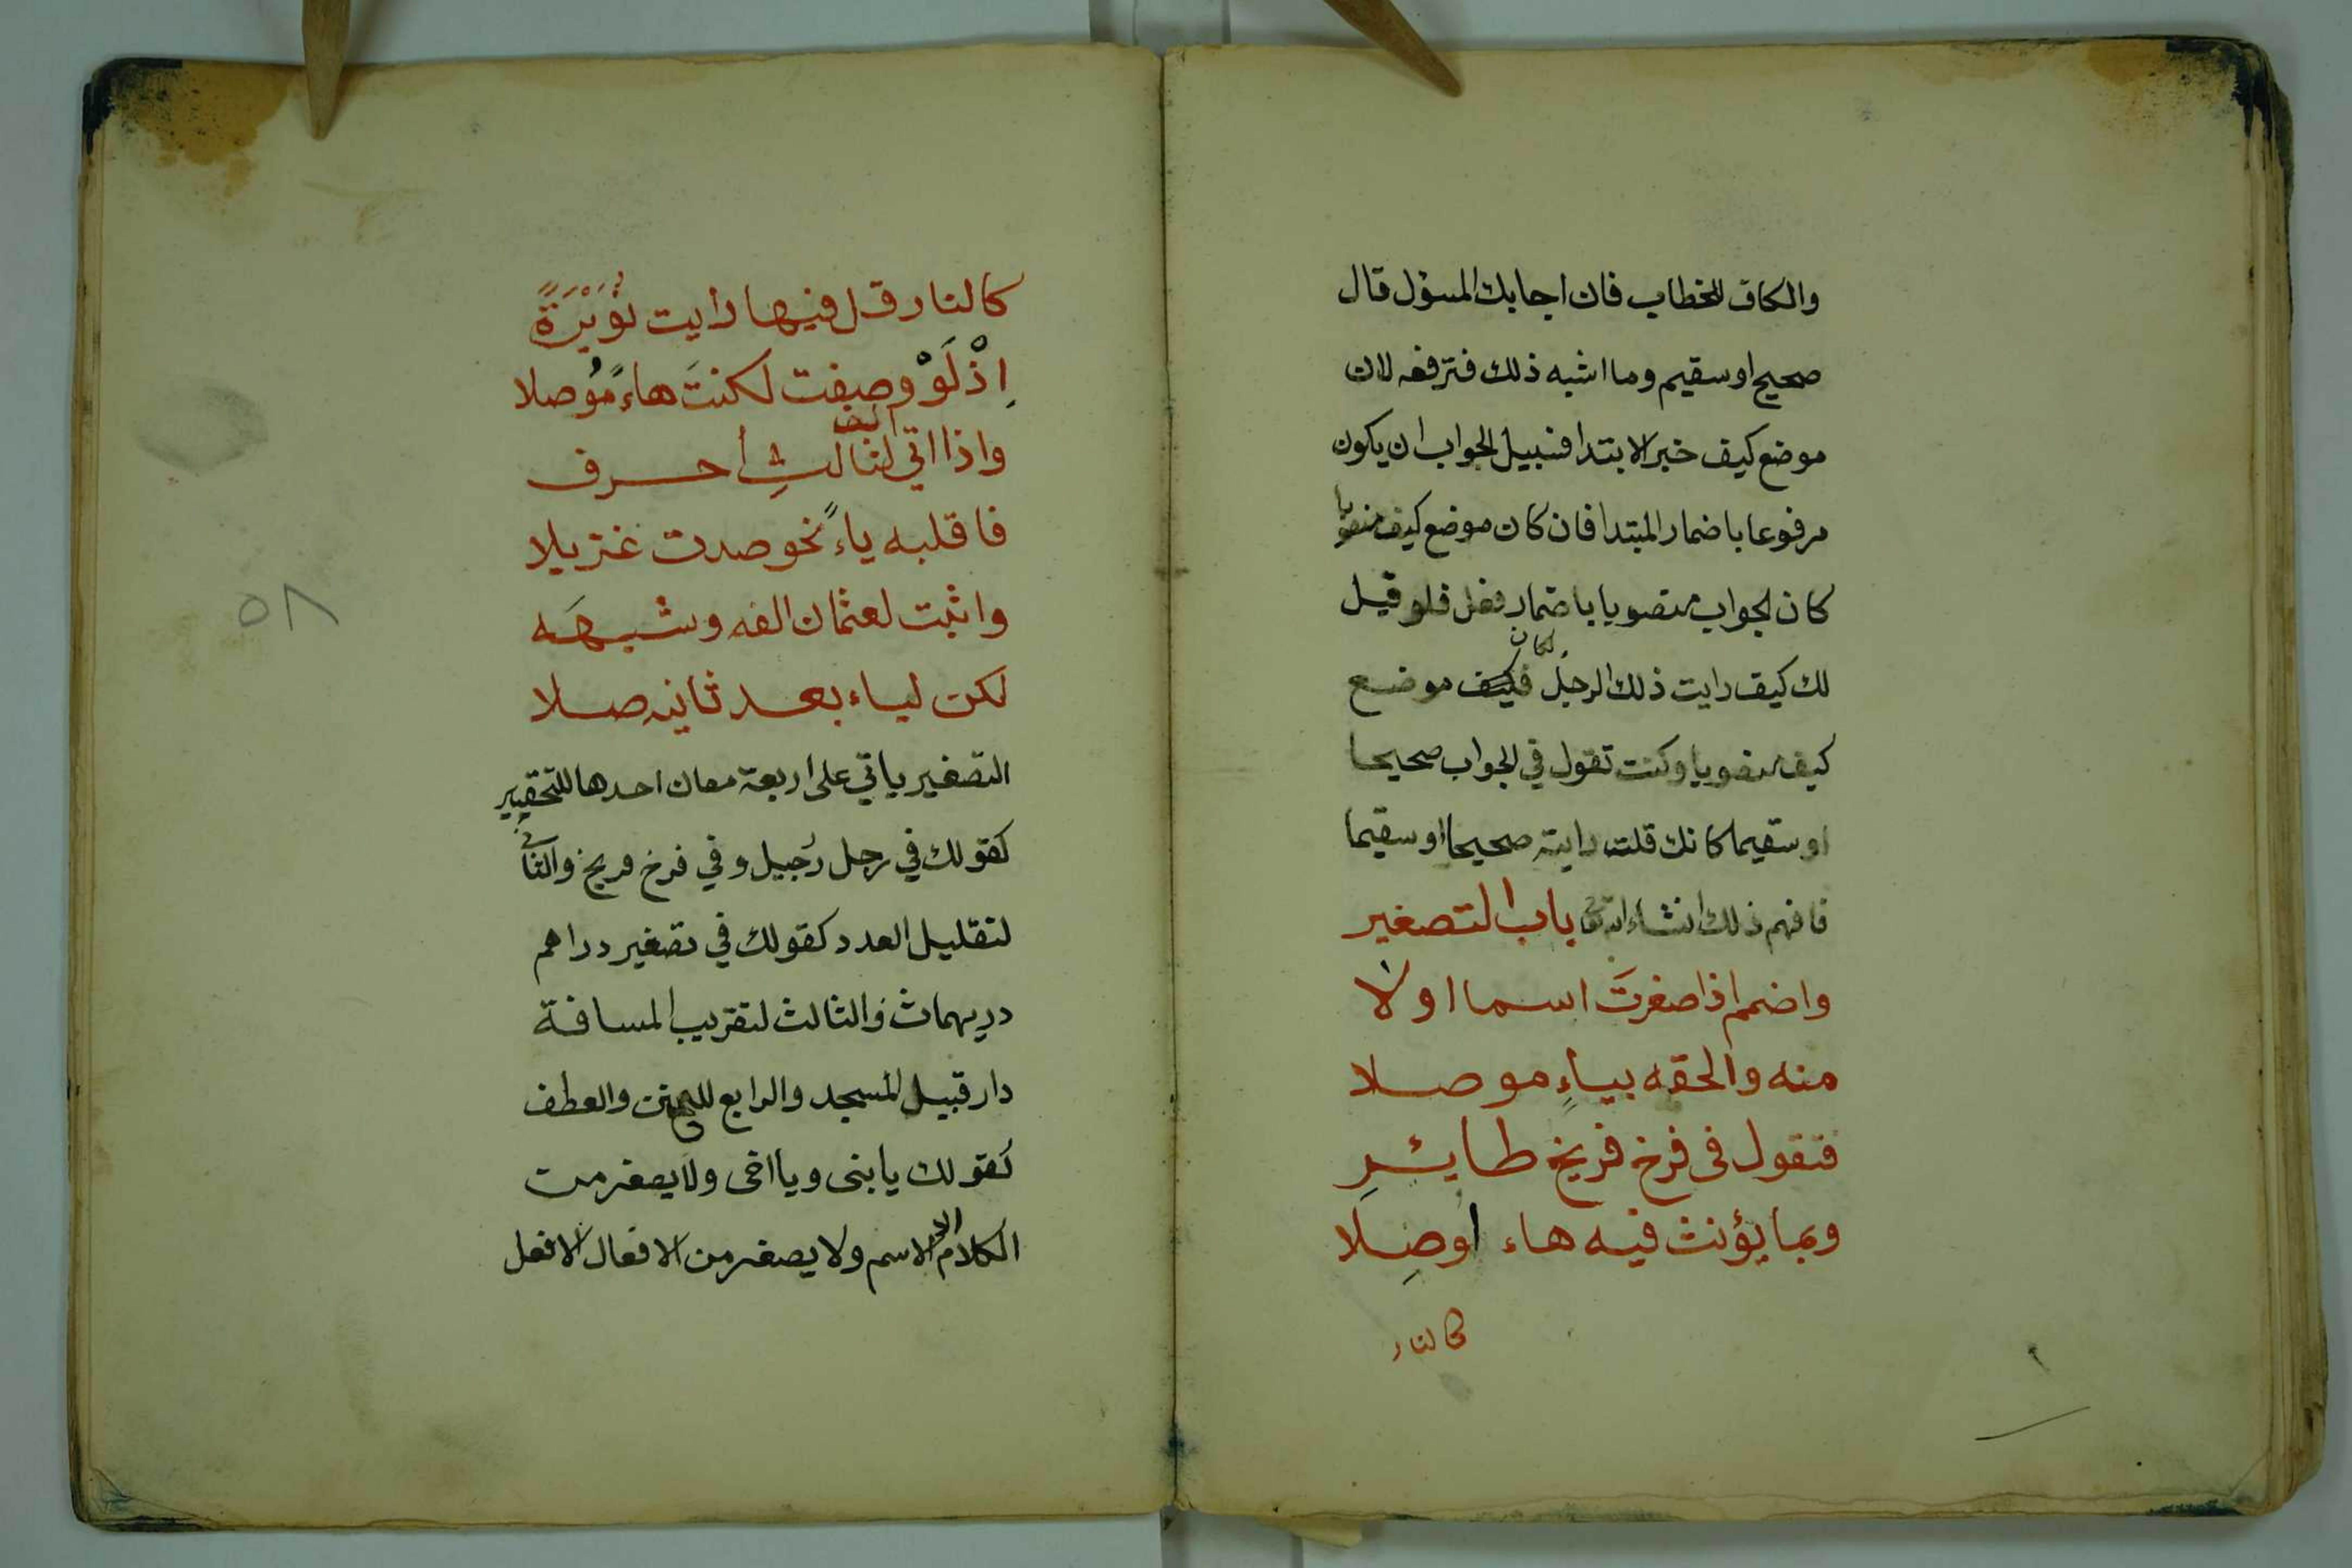 والكاف للخطاب فان اجابك المسؤل قال
صحيح او سقيم وما اشبه ذلك فترفعه لان
موضع كيف خبر الابتدا فسبيل الجواب ان يكون
مرفوعا باضمار المبتدا فان كان موضع كيف منصوبا
كان الجواب منصوبا باضمار فعل فلو قيل
لك كيف رايت ذلك الرجل لكان موضع
كيف منصوبا وكنت تقول في الجواب صحيحا
او سقيما كانك قلت رايته صحيحا او سقيما
فافهم ذلك انشاء الله باب التصغير
واضمم اذا صغرت اسما اولا
منه والحقه بياءٍ موصلا
فتقول فى فرخ فريخ طايئرِ
وبما يؤنث فيه هاء اوصِلا
كالنار
كالنار قل فيها رايت نُوَيْرَةً
اِذْ لَوْ وصفت لكنتَ هاءً مُوصلا
واذا اتي الف لثالثِ أحرف
فاقلبه ياءً نحو صدت غزيلا
واثبت لعثمان الفه وشبهَه
لكن لياء بعد ثانيه صلا
التصغير ياتي على اربعة معان احدها للتحقير
كقولك في رجل رُجيل وفي فرخ فريخ والثاني
لتقليل العدد كقولك في تصغير دراهم
دريهمات والثالث لتقريب المسافة
دار قبيل المسجد والرابع للتحنن والعطف
كقولك يا بنى ويا اخى ولا يصغر من
الكلام الا الاسم ولا يصغر من الافعال الا فعل
٥٨